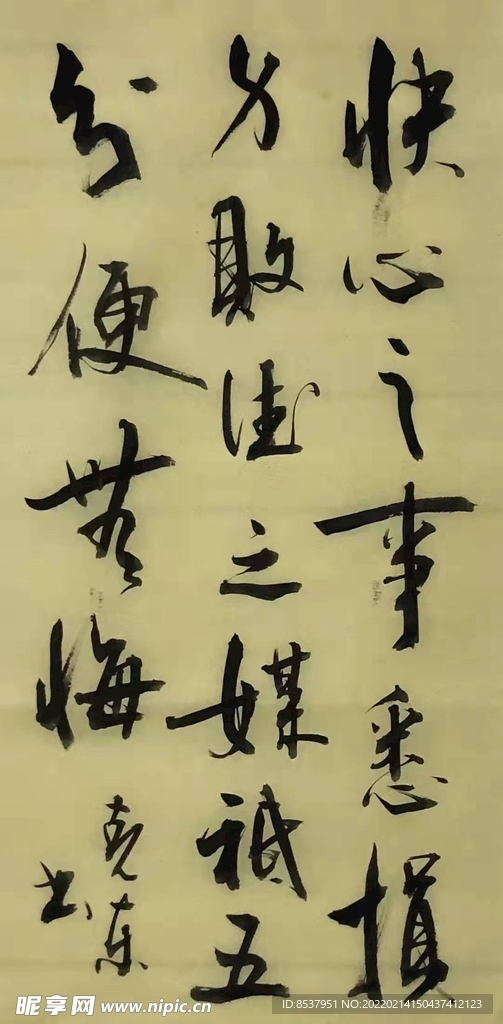 快心之事悉損
身敗德之媒祗五
分便無悔
克东
书
昵享网 www.nipic.cn
ID:8537951 NO:20220214150437412123